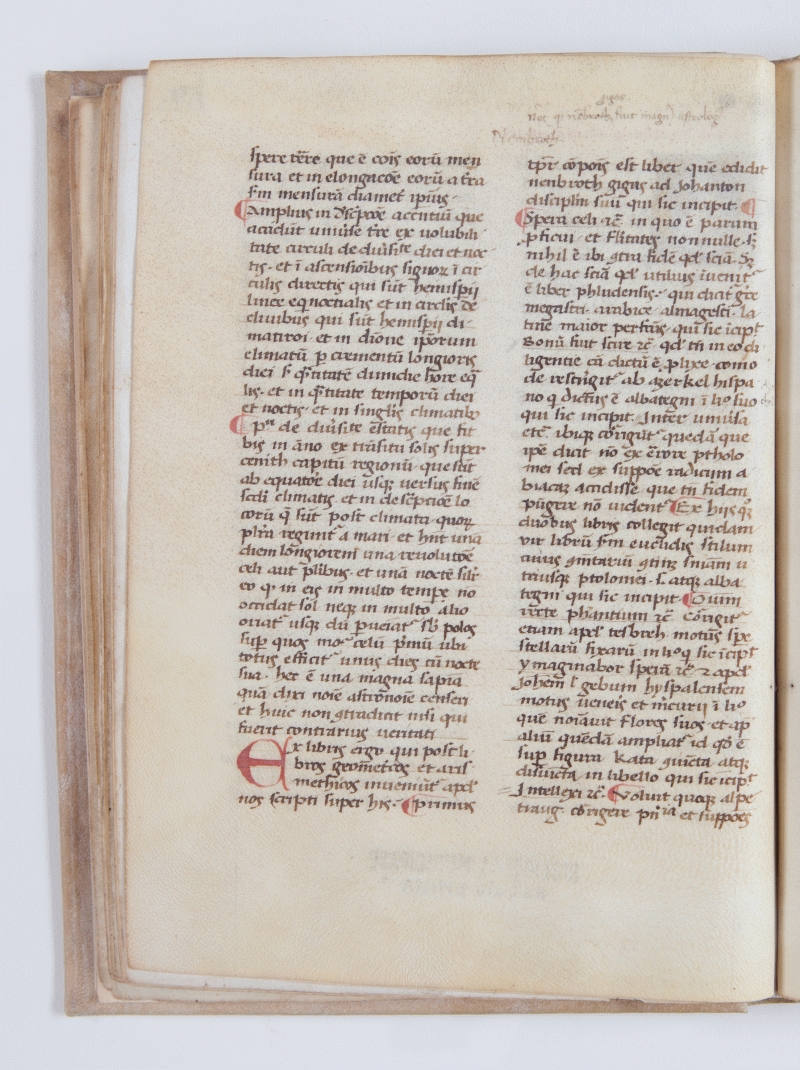 gigas
nõ q nẽbroth fuit magn9 astrolog9
Nembroth
spere terre que ẽ cois eorũ men
sura et in elongacõe eorũ a tra
fm mensurã diamet ipius
Amplius in descpcõe accntiũ que
accidũt univse tre ex volubili
tate circuli de divsite diei et noc
tis et ĩ ascensioĩbus signor ĩ cir
culis directis qui sũt hemispii
linee eqnoctialis et in circlis de
clivibus qui sũt hemispii di
matiroi et in dione ipõrum
climatũ p crementũ longioris
diei s qntitatẽ dimidie hore eq
lis et in qntitate temporũ diei
et noctis et in singlis climatib9
pa de divsite estatis que fit
bis in ãno ex trãsitu solis super
cenith capitũ regionũ que sũt
ab equatõe diei usq versus finẽ
scdi climatis et in descpcioẽ lo
corũ q sũt post climata quor
plra regunt a mari et hñt unã
diem longiorem una revolutõe
celi aut plibus et unã noctẽ silr
eo q in eis in multo tempe no
occidat sol neq in multo alio
oriat usq dũ pveiat sb polos
sup quos mot celũ pmũ ubi
totus efficit unus dies cũ nocte
sua hec ẽ una magna sapia
quã dixi noie astronoie censeri
et huic non gtradicit nisi qui
fuerit contrarius veritati
Ex libris ergo qui post li
bros geometcos et aris
methicos inveniũt apd
nos scripti super his primus
tpr cõpois est liber quẽ edidit
nenbroth gigas ad Johanton
discipulũ suũ qui sic incipit
Spera celi rc in quo ẽ parum
pficui et flitates non nulle s
nihil ẽ ibi gtra fidẽ qd sciã Sz
de hac sciã qd utilius ĩvenit
ẽ liber phludensis qui dicit gre
megasti arabice almagesti la
tine maior perfcũs qui sic ĩcipt
Bonũ fuit scire rc qd tñ in eo di
ligentie cã dictũ ẽ plixe como
de restrigit ab azerkel hispa
no q dictus ẽ albategni ĩ lio suo
qui sic incipit Inter univsa
etc ibiq corrigũt quedã que
ipẽ dicit nõ ex errore ptholo
mei sed ex supposicõe radicum a
biacaz accidisse que tñ fidem
pũgere nõ vident Ex hiis q
duobus libris collegit quidam
vir librũ fm euclidis stilum
cuius gmtariũ gtinz sniam u
triusq ptolomei s atq alba
tegni qui sic incipit Oium
recte phantium rc Corrigit
etiam apd tesbreh motũs spe
stellarũ fixarũ in lioq sic ĩcipt
ymaginabor sperã rc 2 apd
Johem l gebum hyspalensem
motus veneis et mcurii ĩ lio
quẽ noiavit Flores suos et ap
aliũ quẽdã ampliat id qd ẽ
sup figura Kata gniũcta atq
disiũcta in libello qui sic icipt
Intellexi rc Voluit quoq alpe
traug corrigere pnia et suppoes